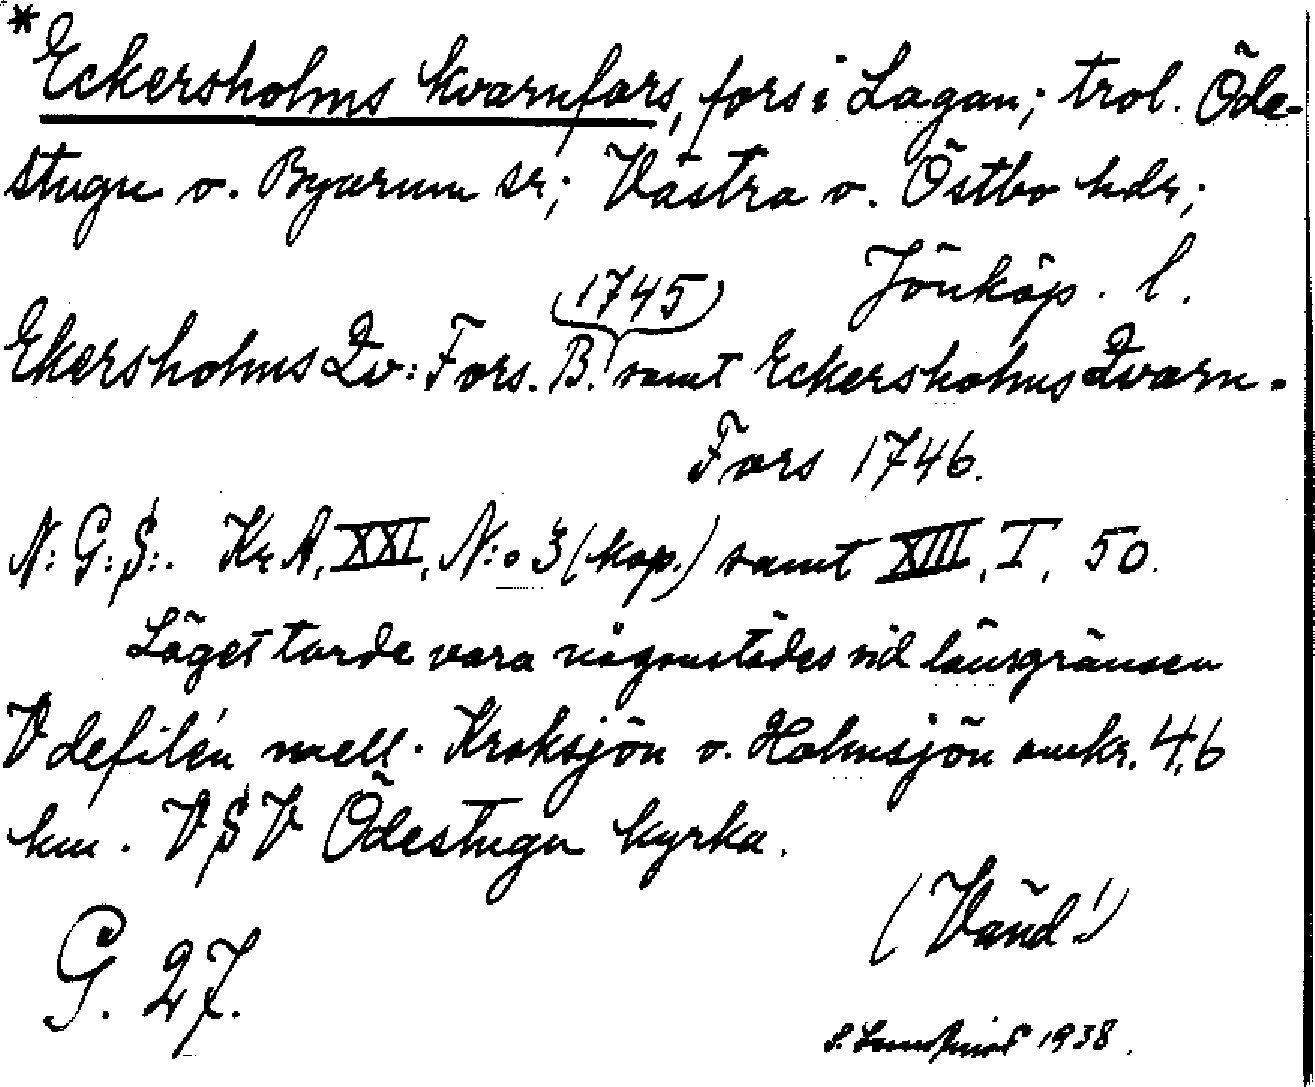 *Eckersholms kvarnfors, fors i Lagan; trol. Öde-
stugu o. Byarum sr; Västra o. Östbo hdr;
Jönköp. l.
1745
Ekersholms Qv: Fors. B. samt Eckersholms Qvarn-
Fors 1746.
N: G: S:. Kr. A. XXI, N:o 3 (kop.) samt XIII, I, 50.
Läget torde vara någonstädes vid länsgränsen
V defilén mell. Kroksjön o. Holmsjön omkr. 4,6
km. VSV Ödestugu kyrka.
(Vänd!)
G. 27.
1938.